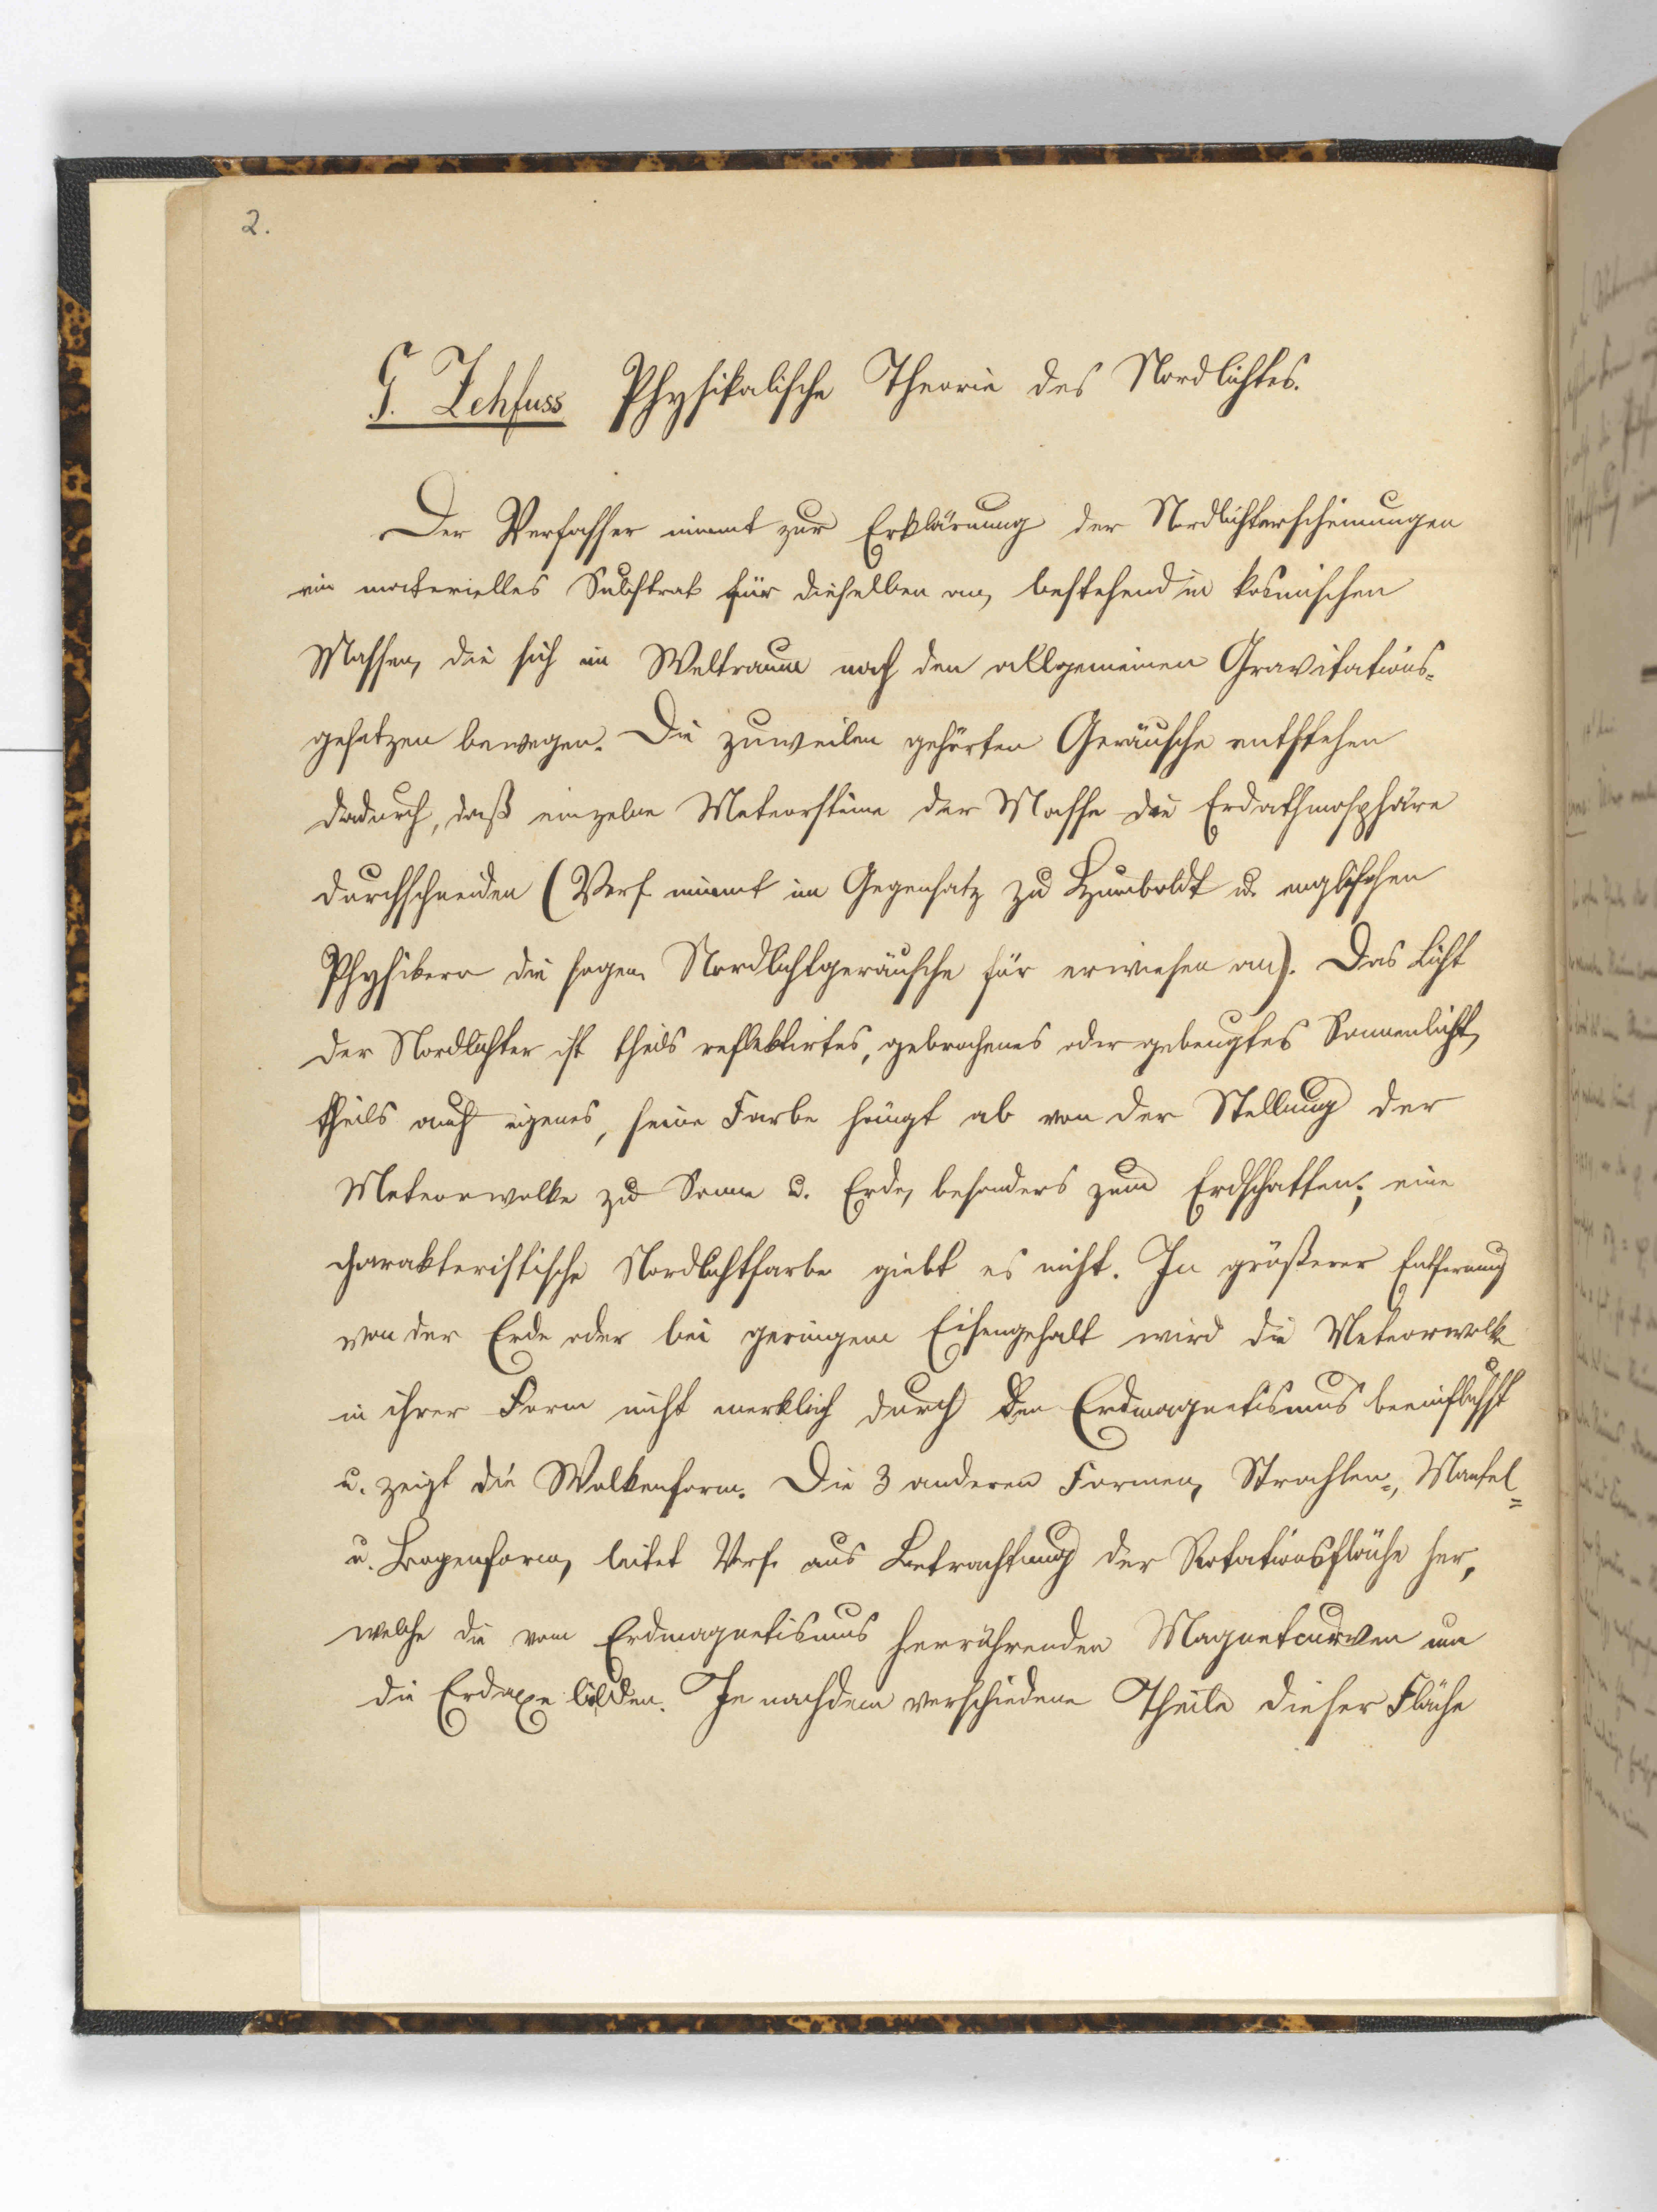 2.
G. Zehfuss Physikalische Theorie des Nordlichtes.
Der Verfasser nimmt zur Erklärung der Nordlichterscheinungen
ein materielles Substrat für dieselben an, bestehend in kosmischen
Massen, die sich im Weltraum nach den allgemeinen Gravitations=
gesetzen bewegen. Die zuweilen gehörten Geräusche entstehen
dadurch, daß einzelne Meteorsteine der Masse die Erdathmosphäre
durchschneiden (Verf. nimmt im Gegensatz zu Humboldt u. englischen
Physikern die sogen. Nordlichtgeräusche für erwiesen an). Das Licht
der Nordlichter ist theils reflektirtes, gebrochenes oder gebeugtes Sonnenlicht,
theils auch eigenes, seine Farbe hängt ab von der Stellung der
Meteorwolke zu Sonne u. Erde, besonders zum Erdschatten; eine
charakteristische Nordlichtfarbe giebt es nicht. In größerer Entfernung
von der Erde oder bei geringem Eisengehalt wird die Meteorwolke
in ihrer Form nicht merklich durch den Erdmagnetismus beeinflusst
u. zeigt die Wolkenform. Die 3 anderen Formen, Strahlen=, Mantel=
u. Bogenform, leitet Verf. aus Betrachtung der Rotationsfläche her,
welche die vom Erdmagnetismus herrührenden Magnetcurven um
die Erdaxe bilden. Je nachdem verschiedene Theile dieser Fläche